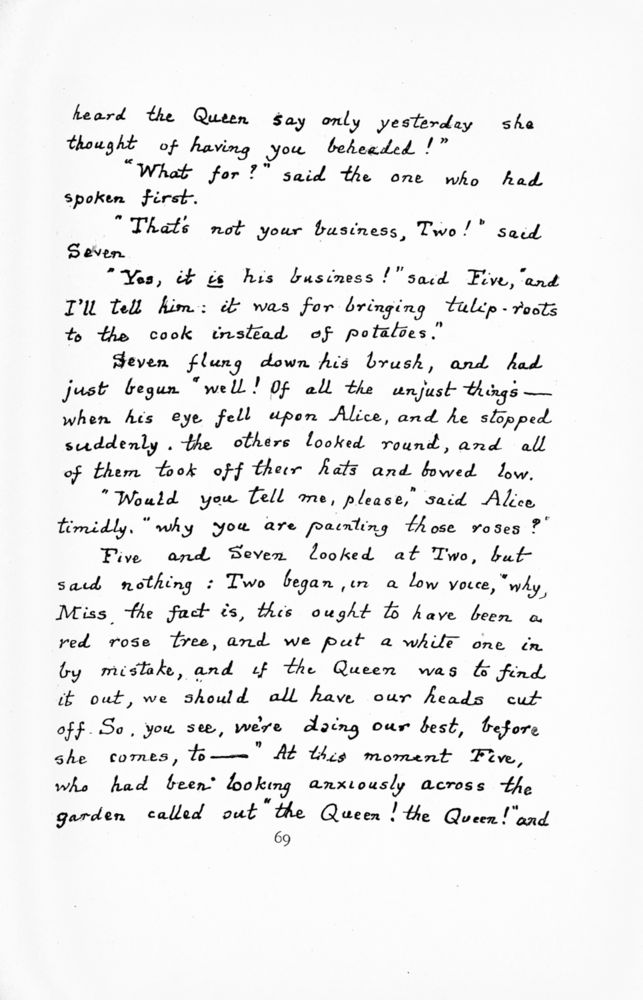 heard the Queen say only yesterday she
thought of having you beheaded!"
"What for?" said the one who had
spoken first.
"That's not your business, Two!" said
Seven
"Yes, it is his business!" said Five, "and
I'll tell him: it was for bringing tulip-roots
to the cook instead of potatoes."
Seven flung down his brush, and had
just begun "well! Of all the unjust things—
when his eye fell upon Alice, and he stopped
suddenly. the others looked round, and all
of them took off their hats and bowed low.
"Would you tell me, please," said Alice
timidly. "why you are painting those roses?"
Five and Seven looked at Two, but
said nothing: Two began, in a low voice, "why,
Miss, the fact is, this ought to have been a
red rose tree, and we put a white one in
by mistake, and if the Queen was to find
it out, we should all have our heads cut
off. So, you see, we're doing our best, before
she comes, to—" At this moment Five,
who had been looking anxiously across the
garden called out "the Queen! the Queen!" and
69